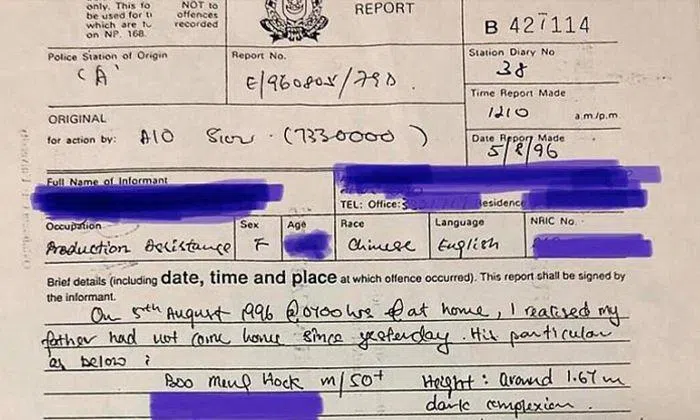 only. This fo NOT to
be used for ti offences
which are tι recorded
on NP. 168.
REPORT
B 427114
Police Station of Origin
'A'
Report No.
E/960805/79D
Station Diary No
38
Time Report Made
1210 a.m/p.m.
ORIGINAL
for action by: AIO (7330000)
Date Report Made
5/8/96
Full Name of Informant
TEL: Office: Residence
Occupation
Production Assistance
Sex
F
Age
Race
Chinese
Language
English
NRIC No.
Brief details (including date, time and place at which offence occurred). This report shall be signed by
the informant.
On 5th August 1996 @ 0700 hrs at home, I realised my
father had not come home since yesterday. His particular
as below :
Boo Meng Hock m/50+ Height : around 1.67 m
dark complexion